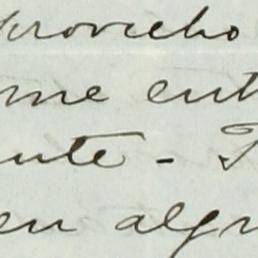 provecho
me ent
nte - T
en algu